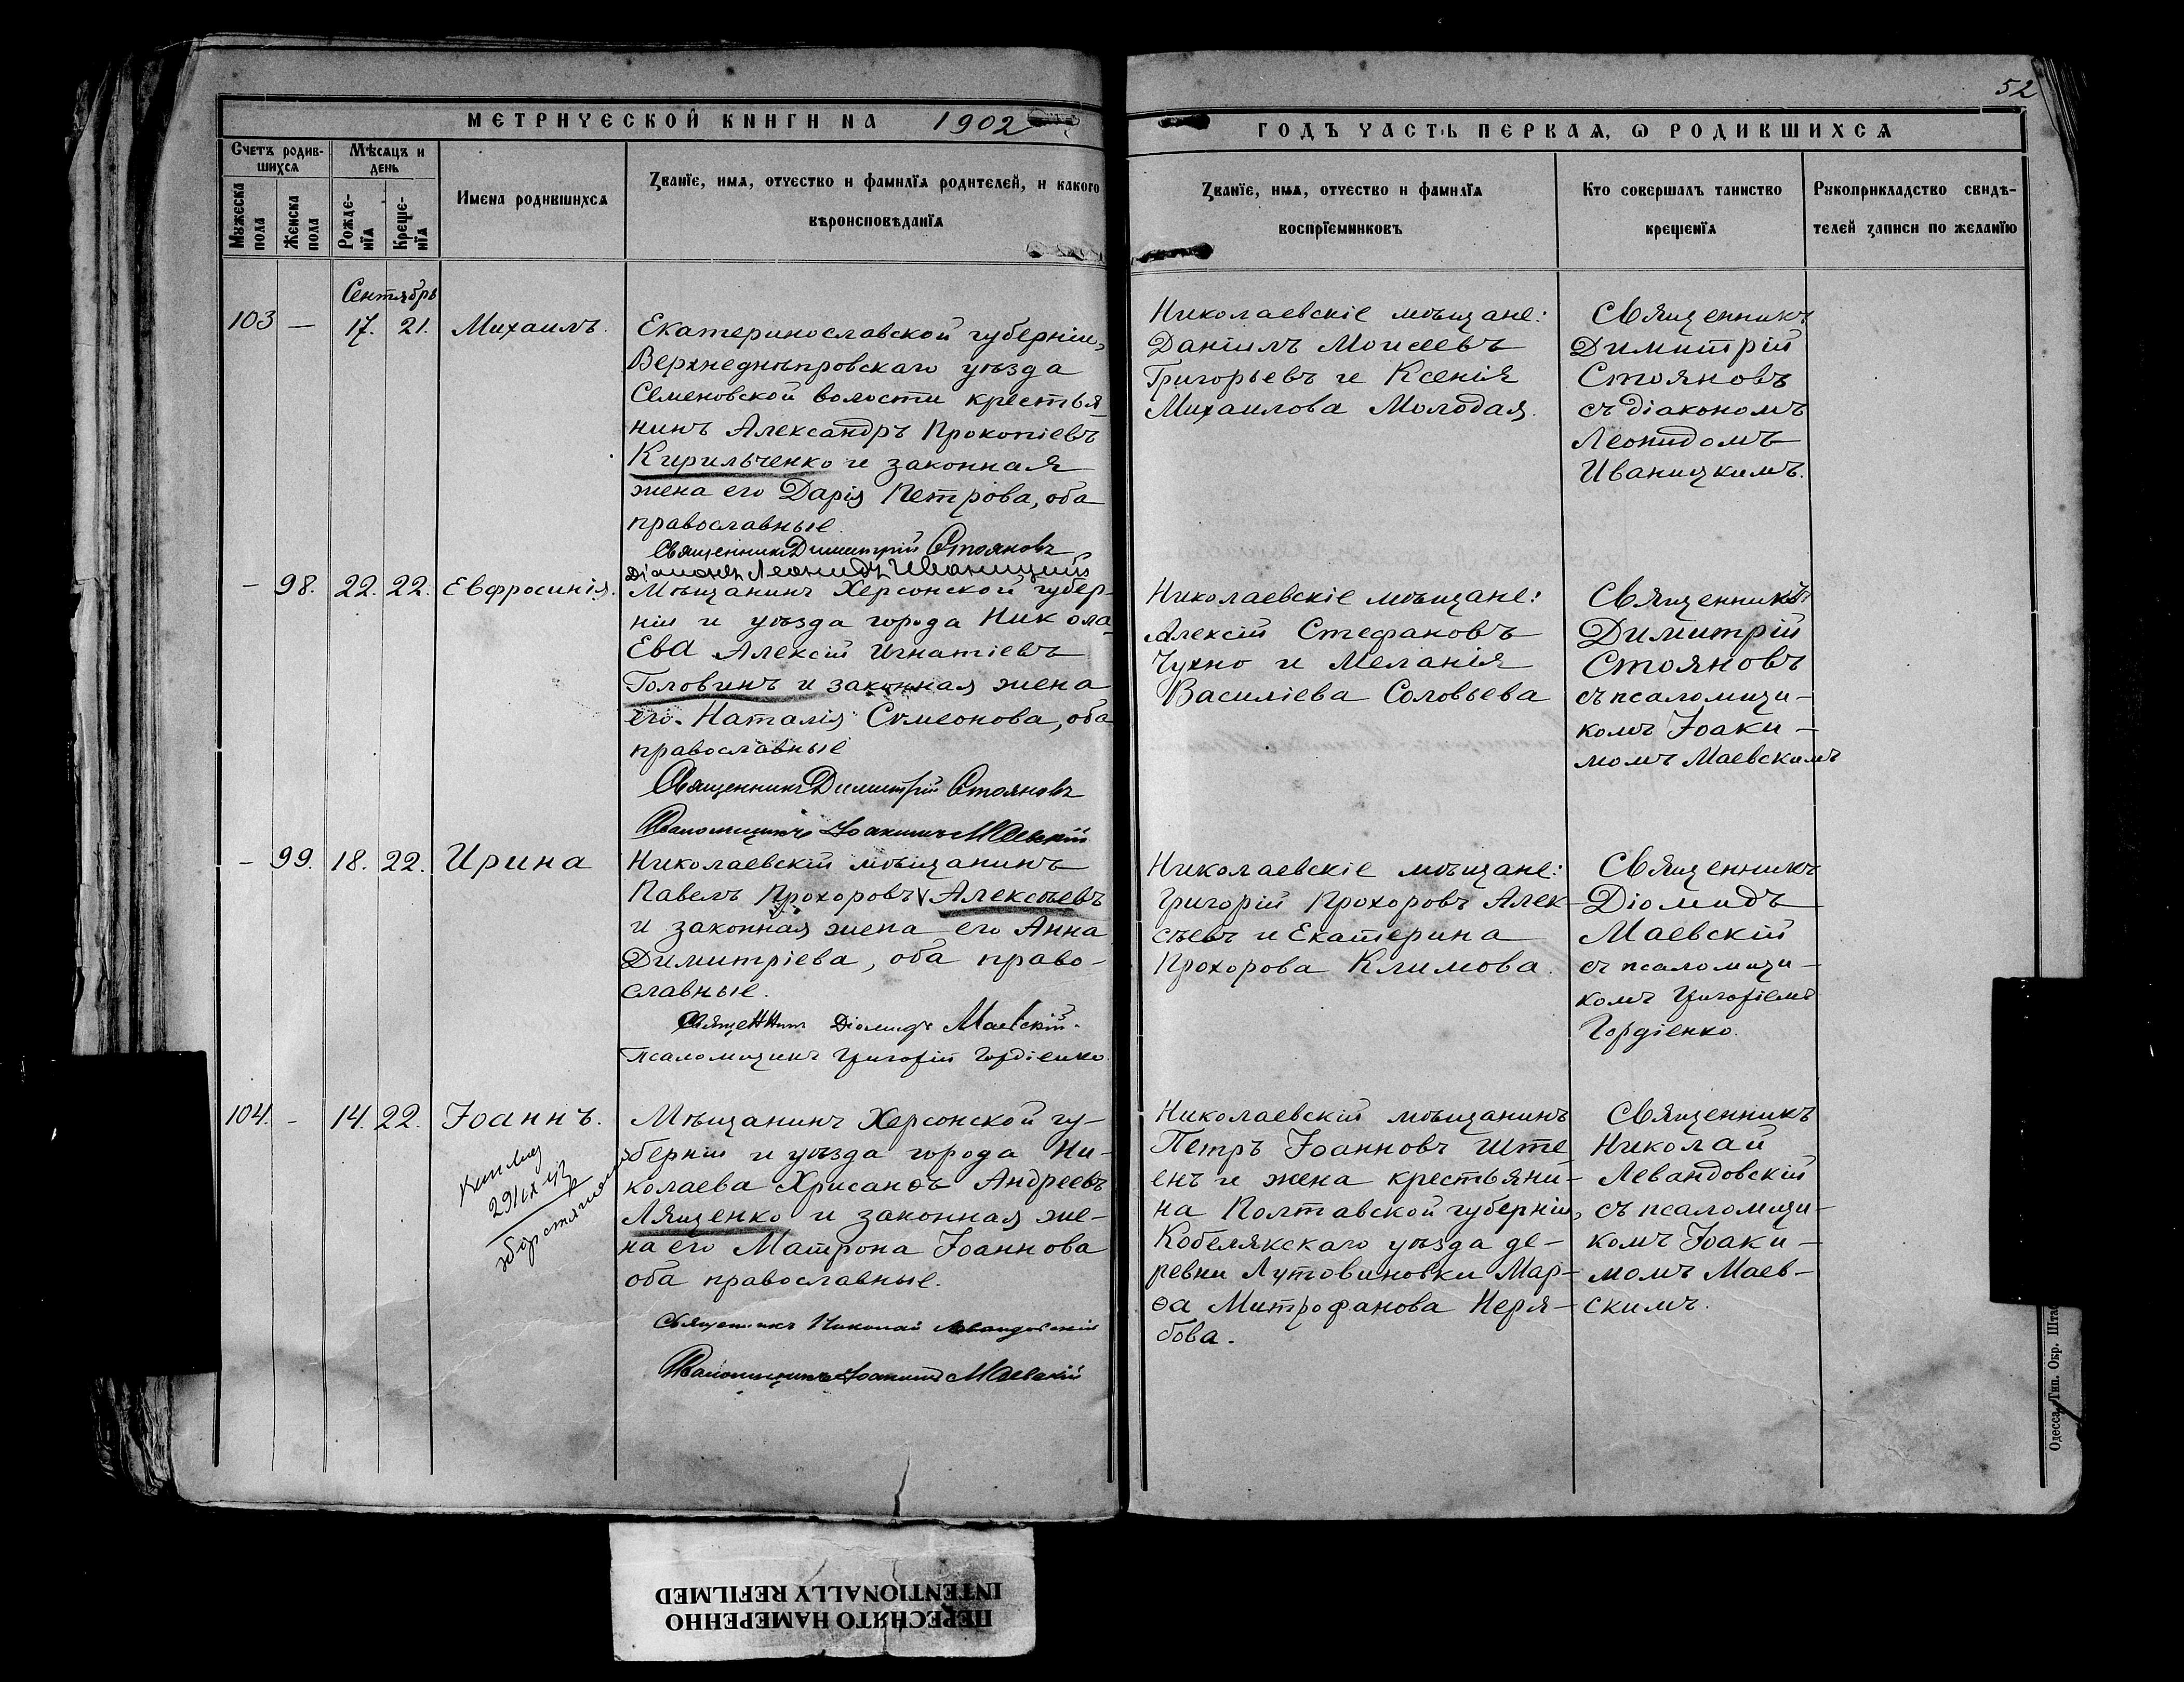 52
МЕТРИЧЕСКОЙ КНИГИ НА 1902
ГОДЪ ЧАСТЬ ПЕРВАЯ, Ѡ РОДИВШИХСЯ
Счетъ родив-
шихся
Мѣсяцъ и
день
Мужеска
пола
Женска
пола
Рожде-
нїя
Креще-
нїя
Имена родившихся
Званїе, имя, отчество и фамилїя родителей, и какого
вѣроисповѣданїя
Званїе, имя, отчество и фамилїя
воспрїемниковъ
Кто совершалъ таинство
крещенїя
Рукоприкладство свидѣ-
телей записи по желанїю
Сентябрь
103 — 17. 21. Михаилъ.
Екатеринославской губерніи,
Верхнеднѣпровскаго уѣзда
Семеновской волости крестья-
нинъ Александръ Прокопіевъ
Кирильченко и законная
жена его Дарія Петрова, оба
православные.
Священникъ Димитрій Стояновъ
Діаконъ Леонидъ Иваницкій
Николаевскіе мѣщане:
Даніилъ Моисеевъ
Григорьевъ и Ксенія
Михаилова Молодая.
Священникъ
Димитрій
Стояновъ
съ діакономъ
Леонидомъ
Иваницкимъ.
— 98. 22. 22. Евфросинія.
Мѣщанинъ Херсонской губер-
ніи и уѣзда города Никола-
ева Алексій Игнатіевъ
Головинъ и законная жена
его Наталія Симеонова, оба
православные
Священникъ Димитрій Стояновъ
Псаломщикъ Іоакимъ Маевскій
Николаевскіе мѣщане:
Алексій Стефановъ
Чухно и Меланія
Василіева Соловьева
Священникъ
Димитрій
Стояновъ
съ псаломщи-
комъ Іоаки-
момъ Маевскимъ
— 99. 18. 22. Ирина
Николаевскій мѣщанинъ
Павелъ Прохоровъ Алексѣевъ
и законная жена его Анна
Димитріева, оба право-
славные.
Священникъ Діомидъ Маевскій.
Псаломщикъ Григорій Гордіенко.
Николаевскіе мѣщане:
Григорій Прохоровъ Алек-
сѣевъ и Екатерина
Прохорова Климова.
Священникъ
Діомидъ
Маевскій
съ псаломщи-
комъ Григоріемъ
Гордіенко.
104. — 14. 22. Іоаннъ.
Мѣщанинъ Херсонской гу-
берніи и уѣзда города Ни-
колаева Хрисанѳъ Андреевъ
Лященко и законная же-
на его Матрона Іоаннова
оба православные.
Священникъ Николай Левандовскій
Псаломщикъ Іоакимъ Маевскій
Николаевскій мѣщанинъ
Петръ Іоанновъ Ште
енъ и жена крестьяни-
на Полтавской губерніи,
Кобелякскаго уѣзда де-
ревни Лутовиновки Мар-
ѳа Митрофанова Неря-
бова.
Священникъ
Николай
Левандовскій
съ псаломщи-
комъ Іоаки-
момъ Маев-
скимъ.
Одесса, Тип. Окр. Шта
ПЕРЕСНЯТО НАМЕРЕННО
INTENTIONALLY REFILMED